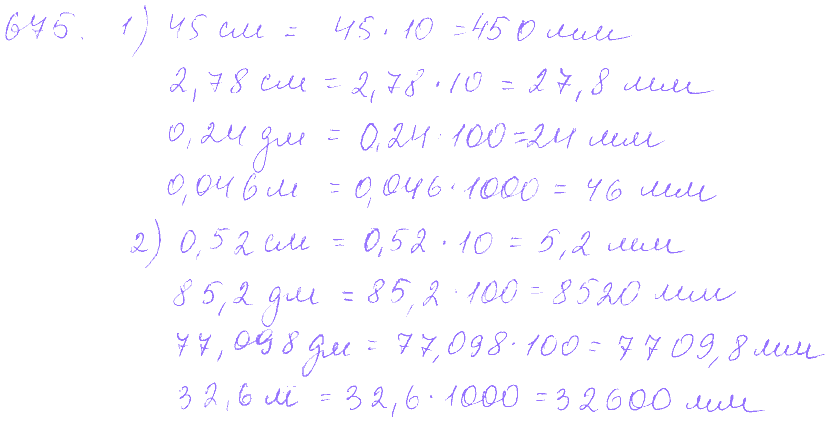 675. 1) 45 см = 45 · 10 = 450 мм
2,78 см = 2,78 · 10 = 27,8 мм
0,24 дм = 0,24 · 100 = 24 мм
0,046 м = 0,046 · 1000 = 46 мм
2) 0,52 см = 0,52 · 10 = 5,2 мм
85,2 дм = 85,2 · 100 = 8520 мм
77,098 дм = 77,098 · 100 = 7709,8 мм
32,6 м = 32,6 · 1000 = 32600 мм